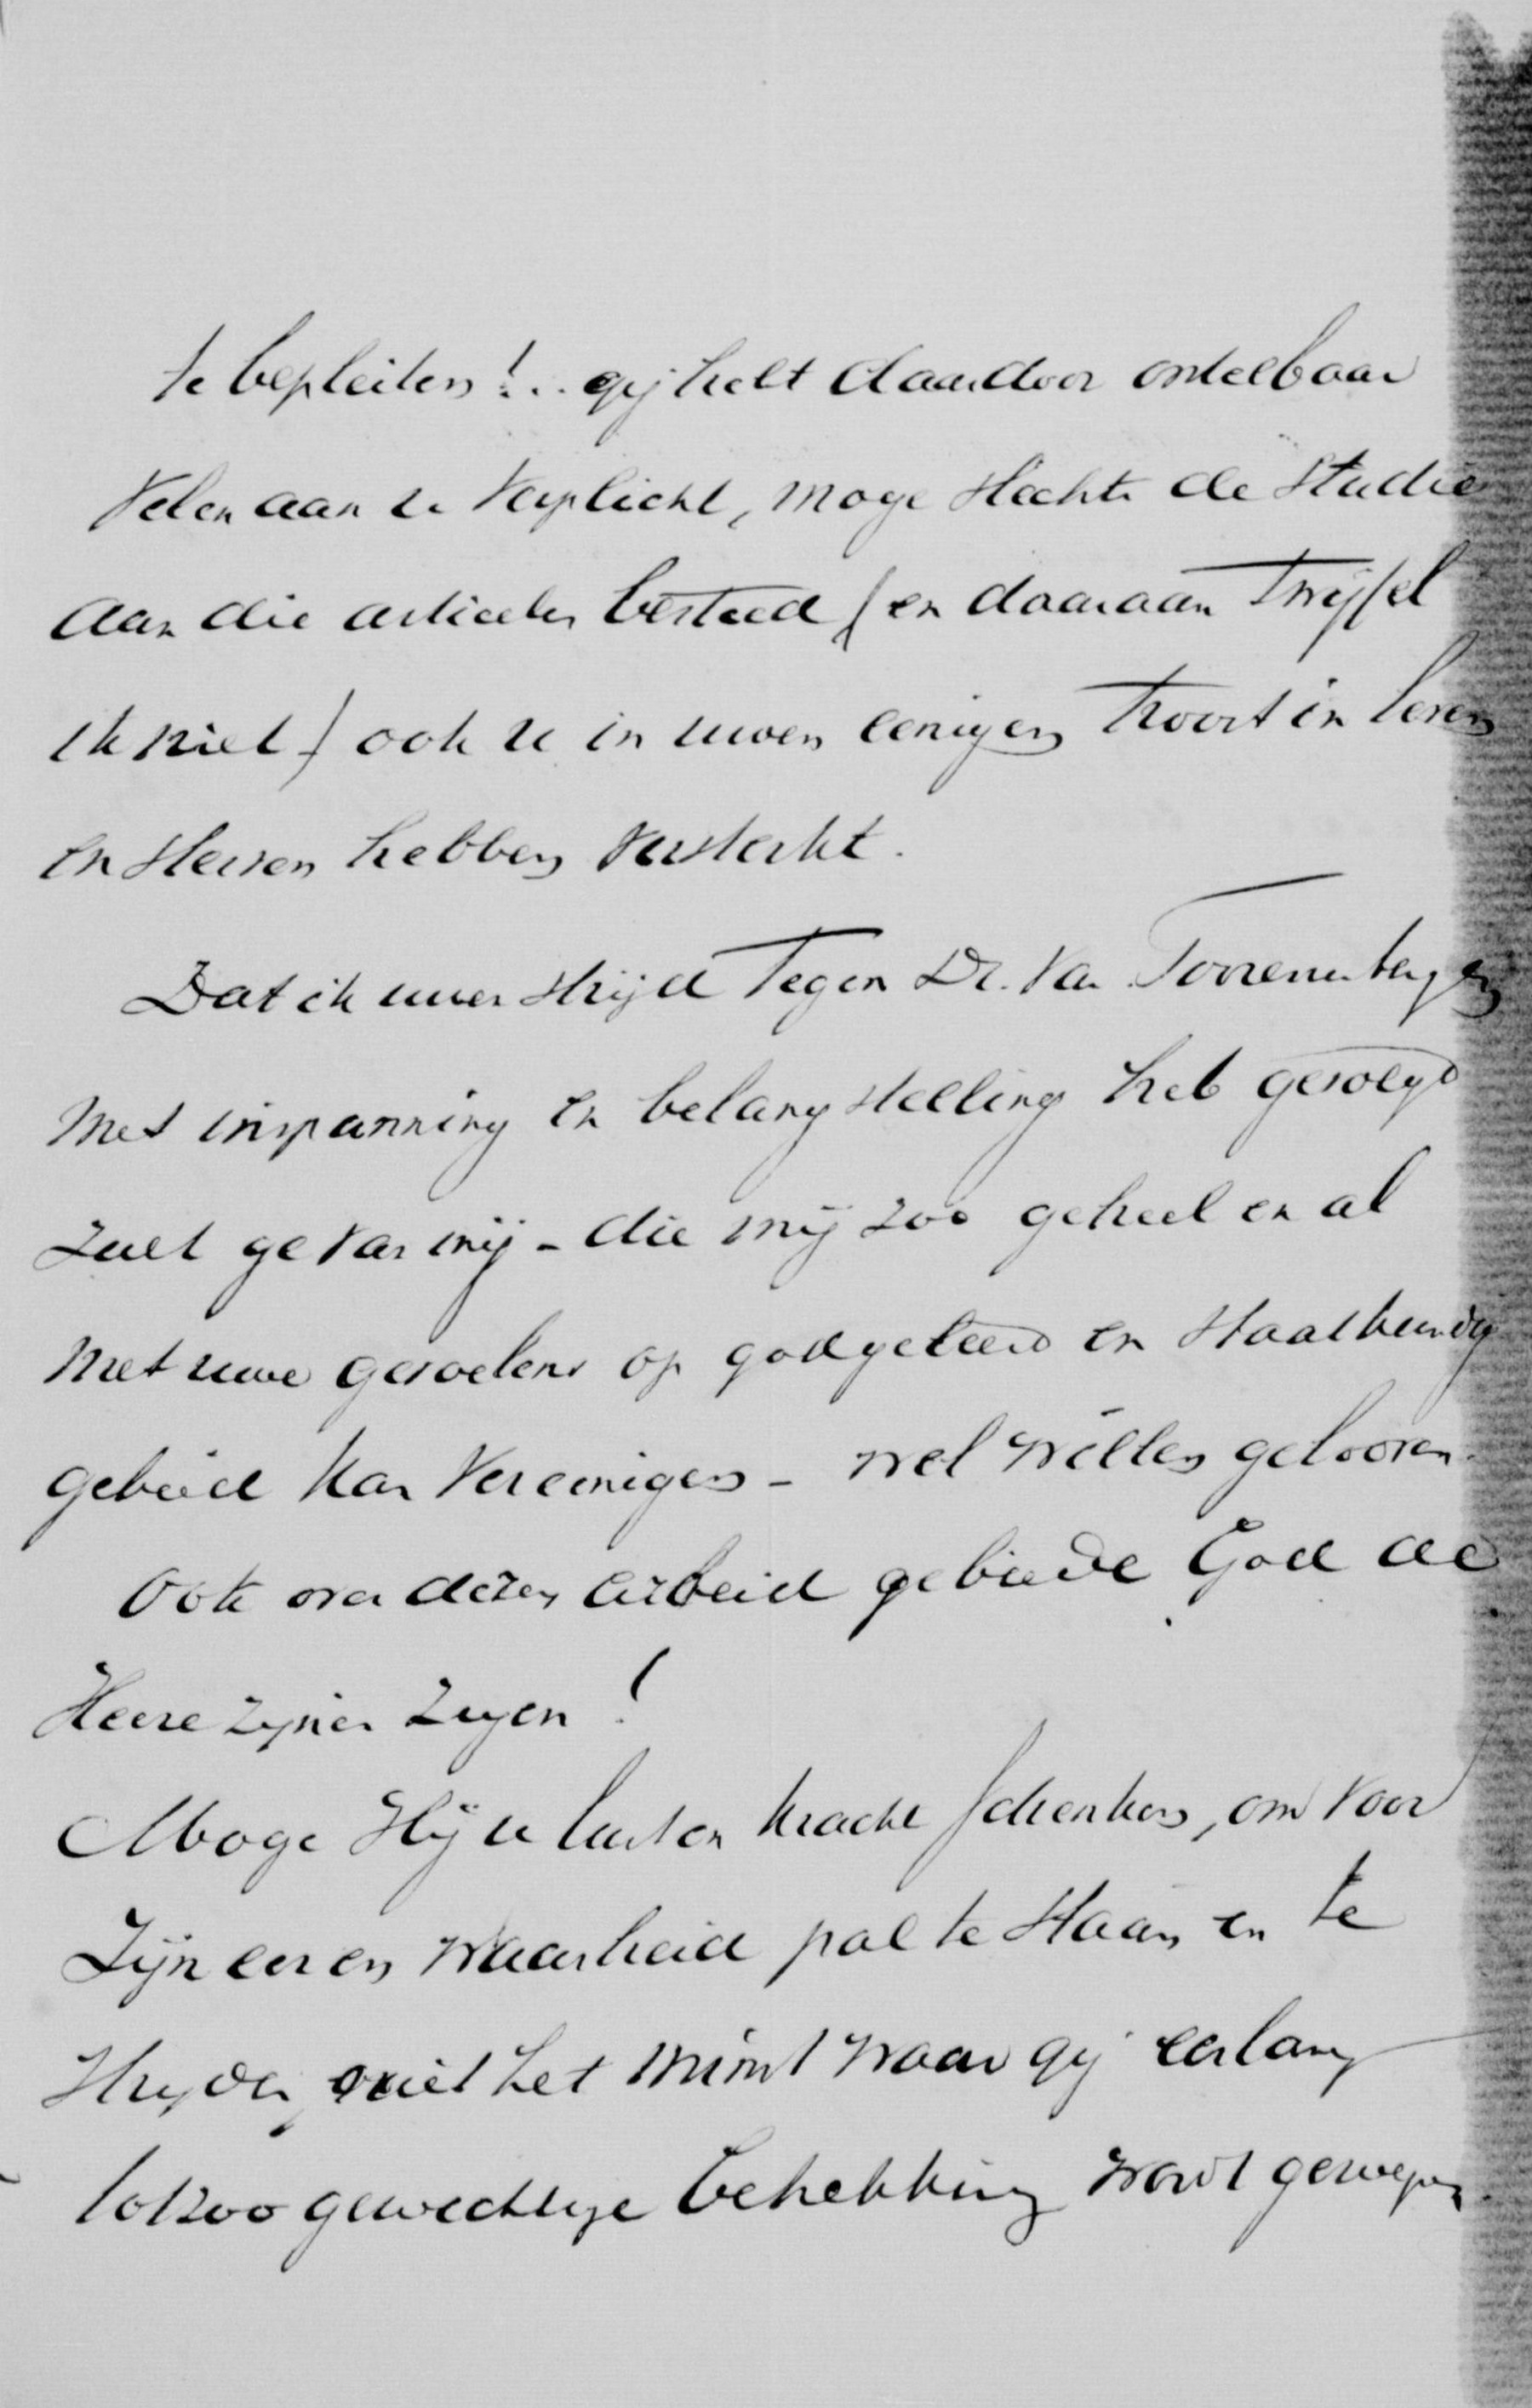 te bepleiten!.. gij hebt daardoor ontelbaar
velen aan u verplicht, moge slechts de studie
aan die artieelen besteed (en daaraan twijfel
ik niet) ook u in uwen eenigen troost in leven
en sterven hebben versterkt.
Dat ik uwen strijd tegen Dr. van Toorenenbergen
met inspanning en belangstelling heb gevolgd
zult ge van mij - die mij zoo geheel en al
met uwe gevoelens op godgeleerd en staatkundig
gebied kan vereenigen - wel willen gelooven.
Ook over dezen arbeid gebiede God de
Heere zijnen zegen!
Moge Hij u lust en kracht schenken, om voor
Zijn eer en waarheid pal te staan en te
stryden, niet het minst waar gij eerlang
tot zoo gewichtige betrekking wordt geroepen.